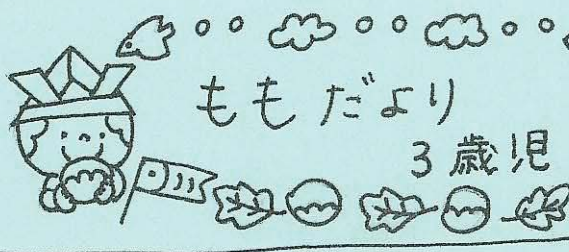 ももだより
3歳児